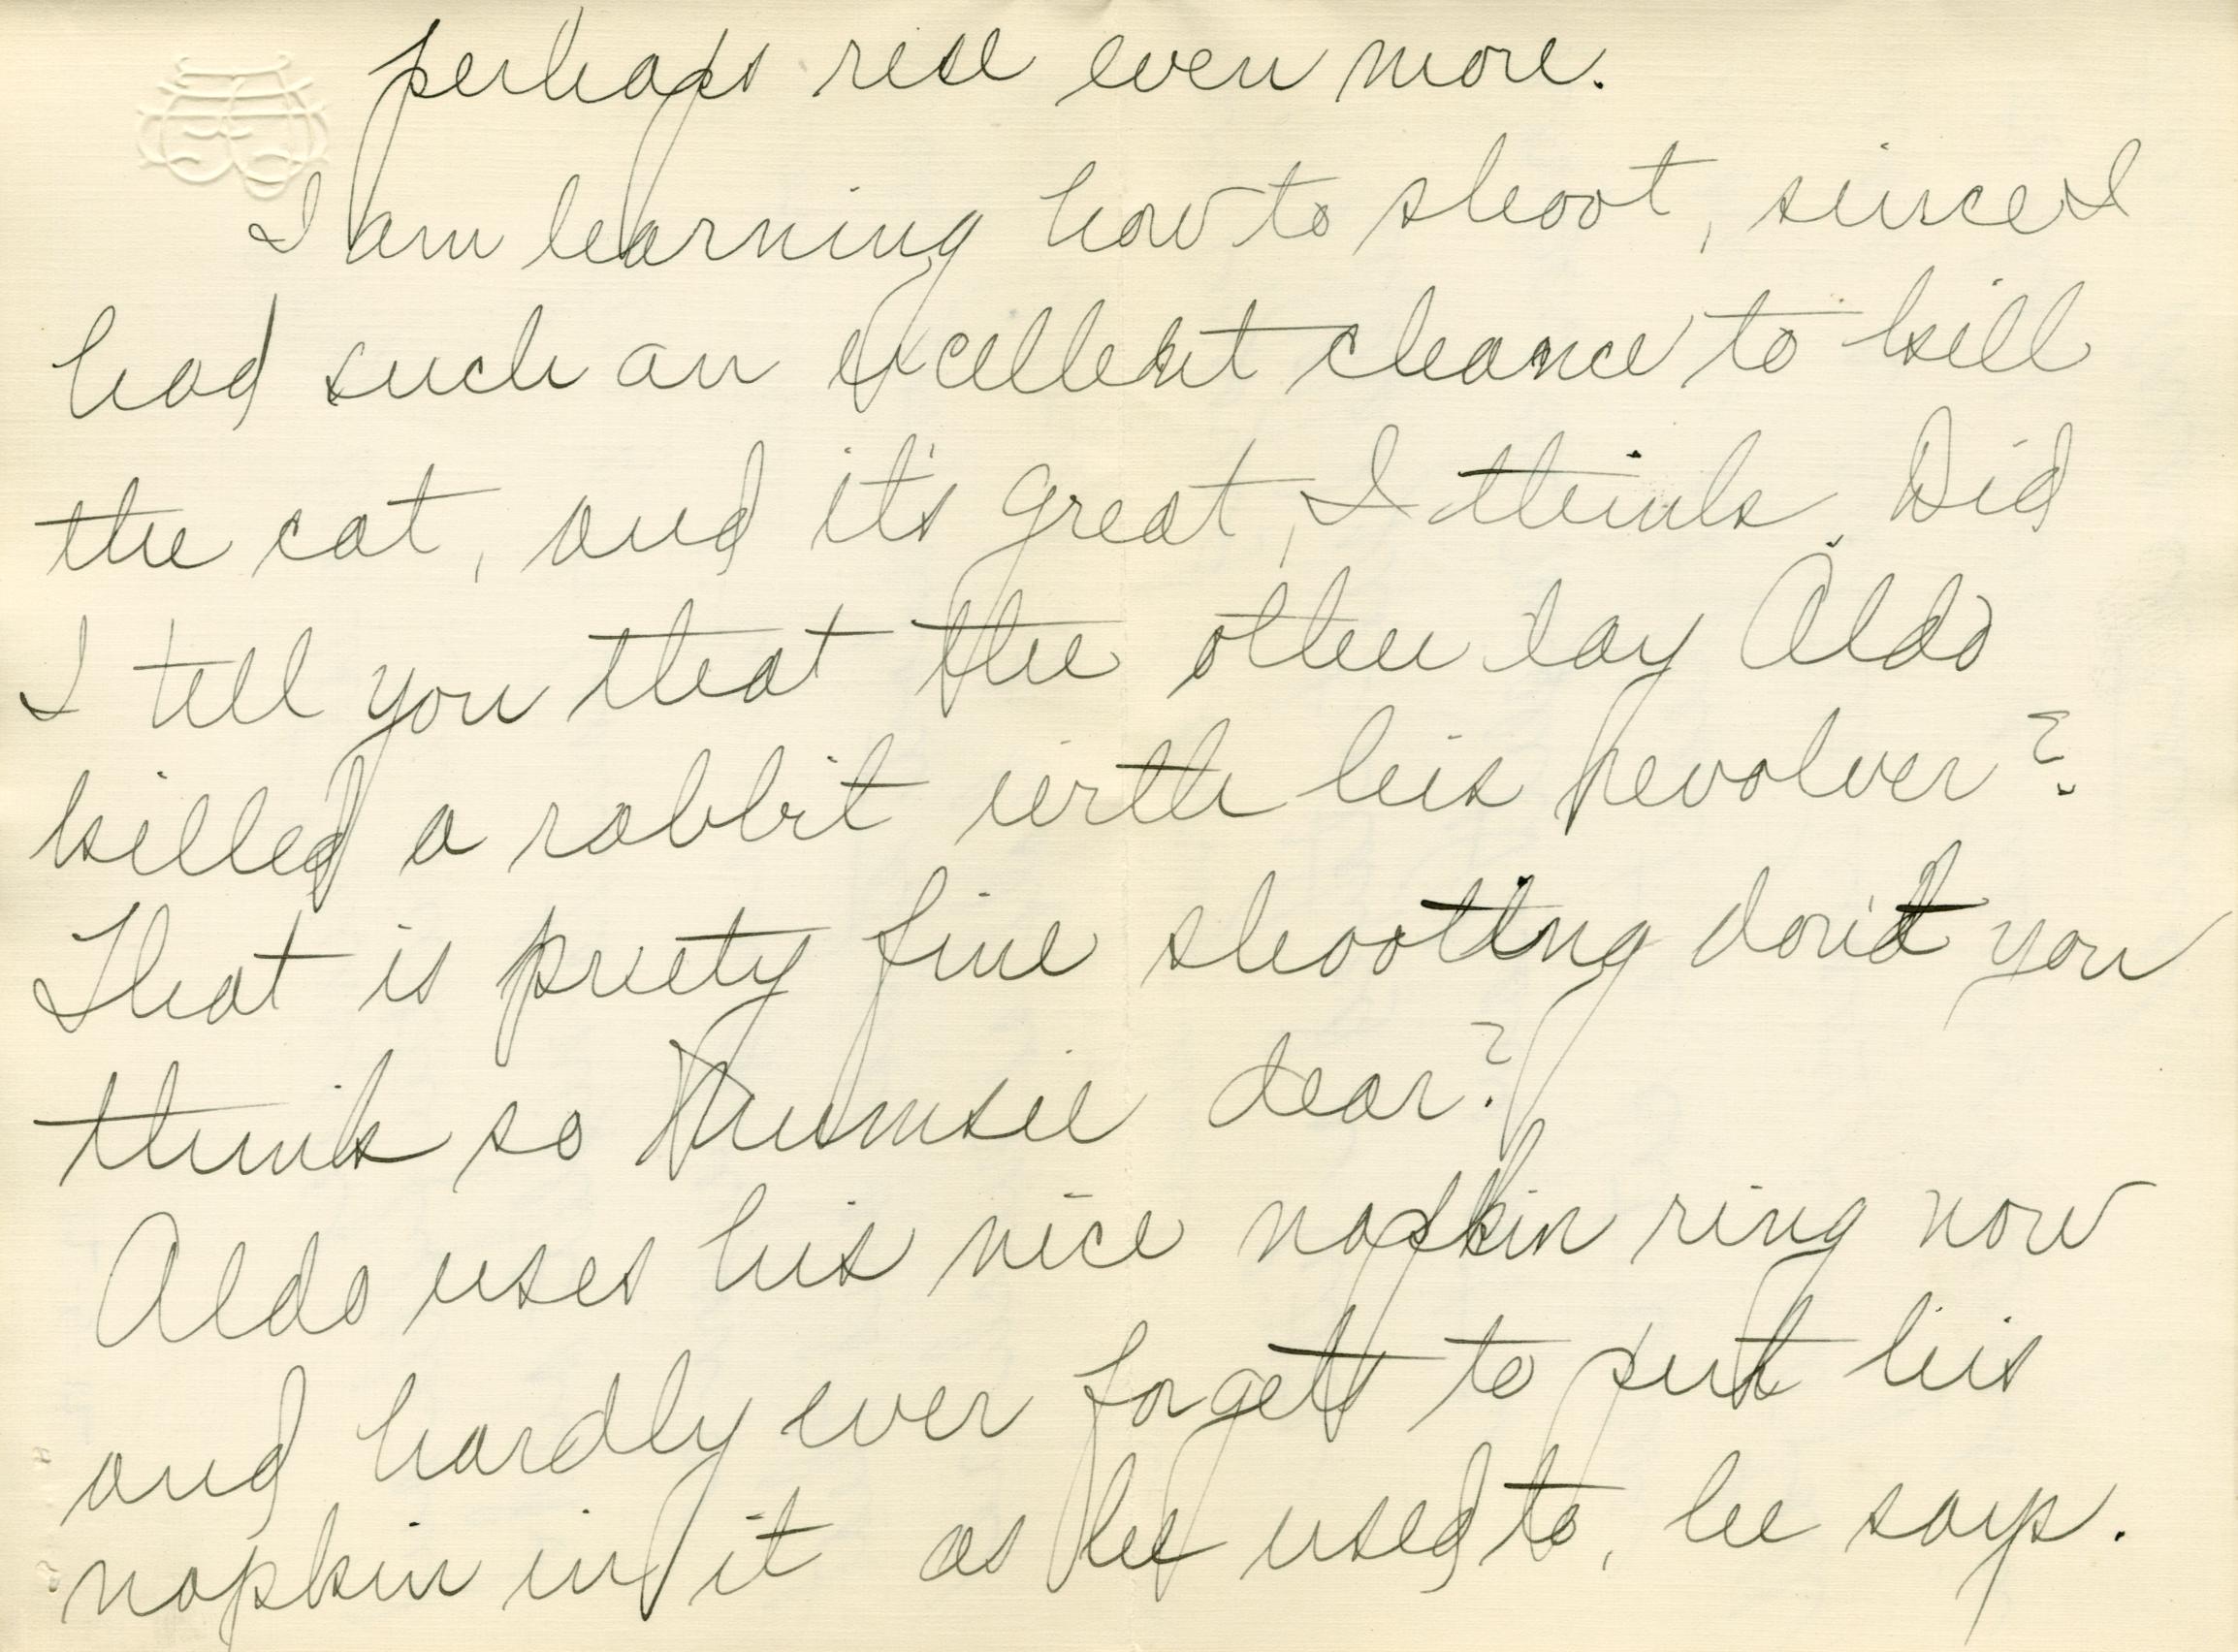 perhaps rise even more.
I am learning how to shoot, since I
had such an excellent chance to kill
the cat, and it's great, I think. Did
I tell you that the other day Aldo
killed a rabbit with his revolver?
That is pretty fine shooting don't you
think so Mumsie dear?
Aldo uses his nice napkin ring now
and hardly ever forgets to put his
napkin in it as he used to, he says.